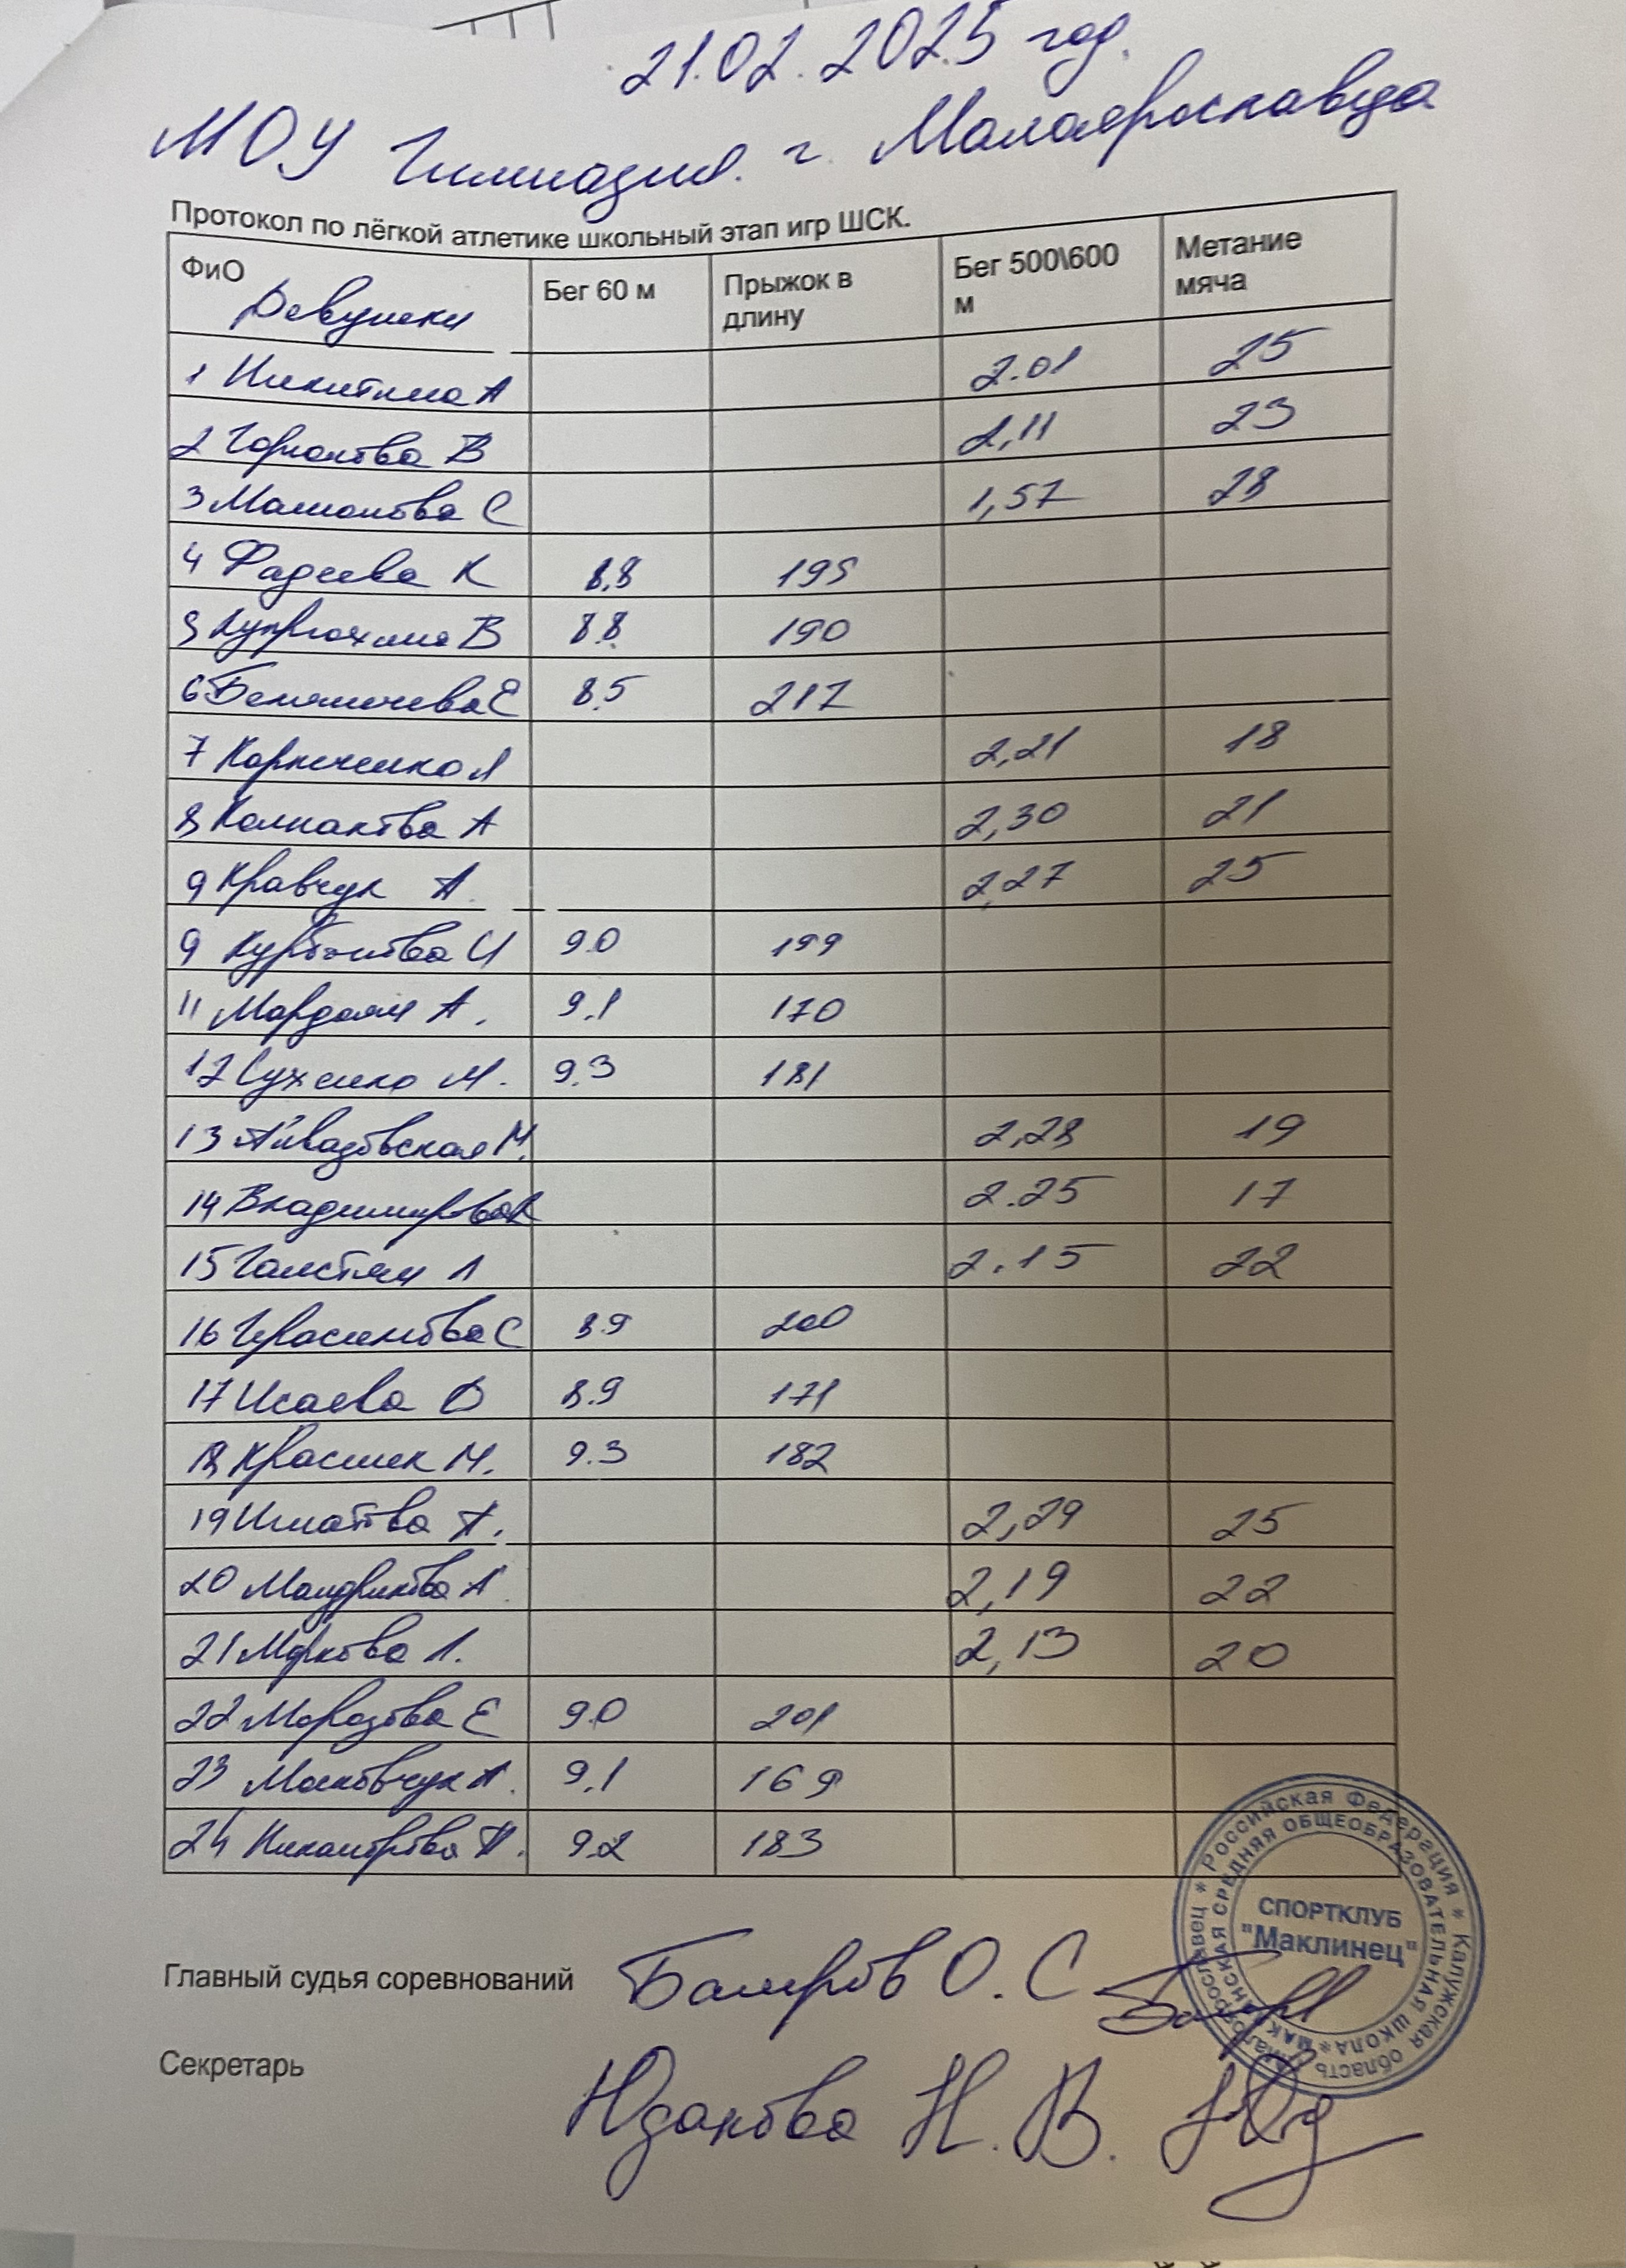 21.02.2025 год.
МОУ Гимназия. г. Малоярославца
Протокол по лёгкой атлетике школьный этап игр ШСК.
ФиО Девушки Бег 60 м Прыжок в длину Бег 500\600 м Метание мяча
1 Никитина А 2.01 25
2 Горнакова В 2,11 23
3 С 1,57 28
4 Фадеева К 8,8 195
5 В 8.8 190
6 Е 8.5 217
7 2,21 18
8 Колпакова А 2,30 21
9 Кравчук А. 2,27 25
9 Курбонова И 9.0 199
11 А. 9.1 170
12 Сухенко М. 9.3 181
13 Айвазовская М. 2,28 19
14 Владимирова 2.25 17
15 Галстян Л 2.15 22
16 Герасимова С 8.9 200
17 Исаева D 8.9 171
18 М. 9.3 182
19 Игнатова А. 2,29 25
20 Мандрикова А. 2,19 22
21 Маркова Л. 2,13 20
22 Морозова Е 9.0 201
23 А. 9.1 169
24 Никанорова 9.2 183
Главный судья соревнований Баиров О. С
Секретарь Юдакова Н. В.
* Российская Федерация * Калужская область
СРЕДНЯЯ ОБЩЕОБРАЗОВАТЕЛЬНАЯ ШКОЛА*
СПОРТКЛУБ
"Маклинец"